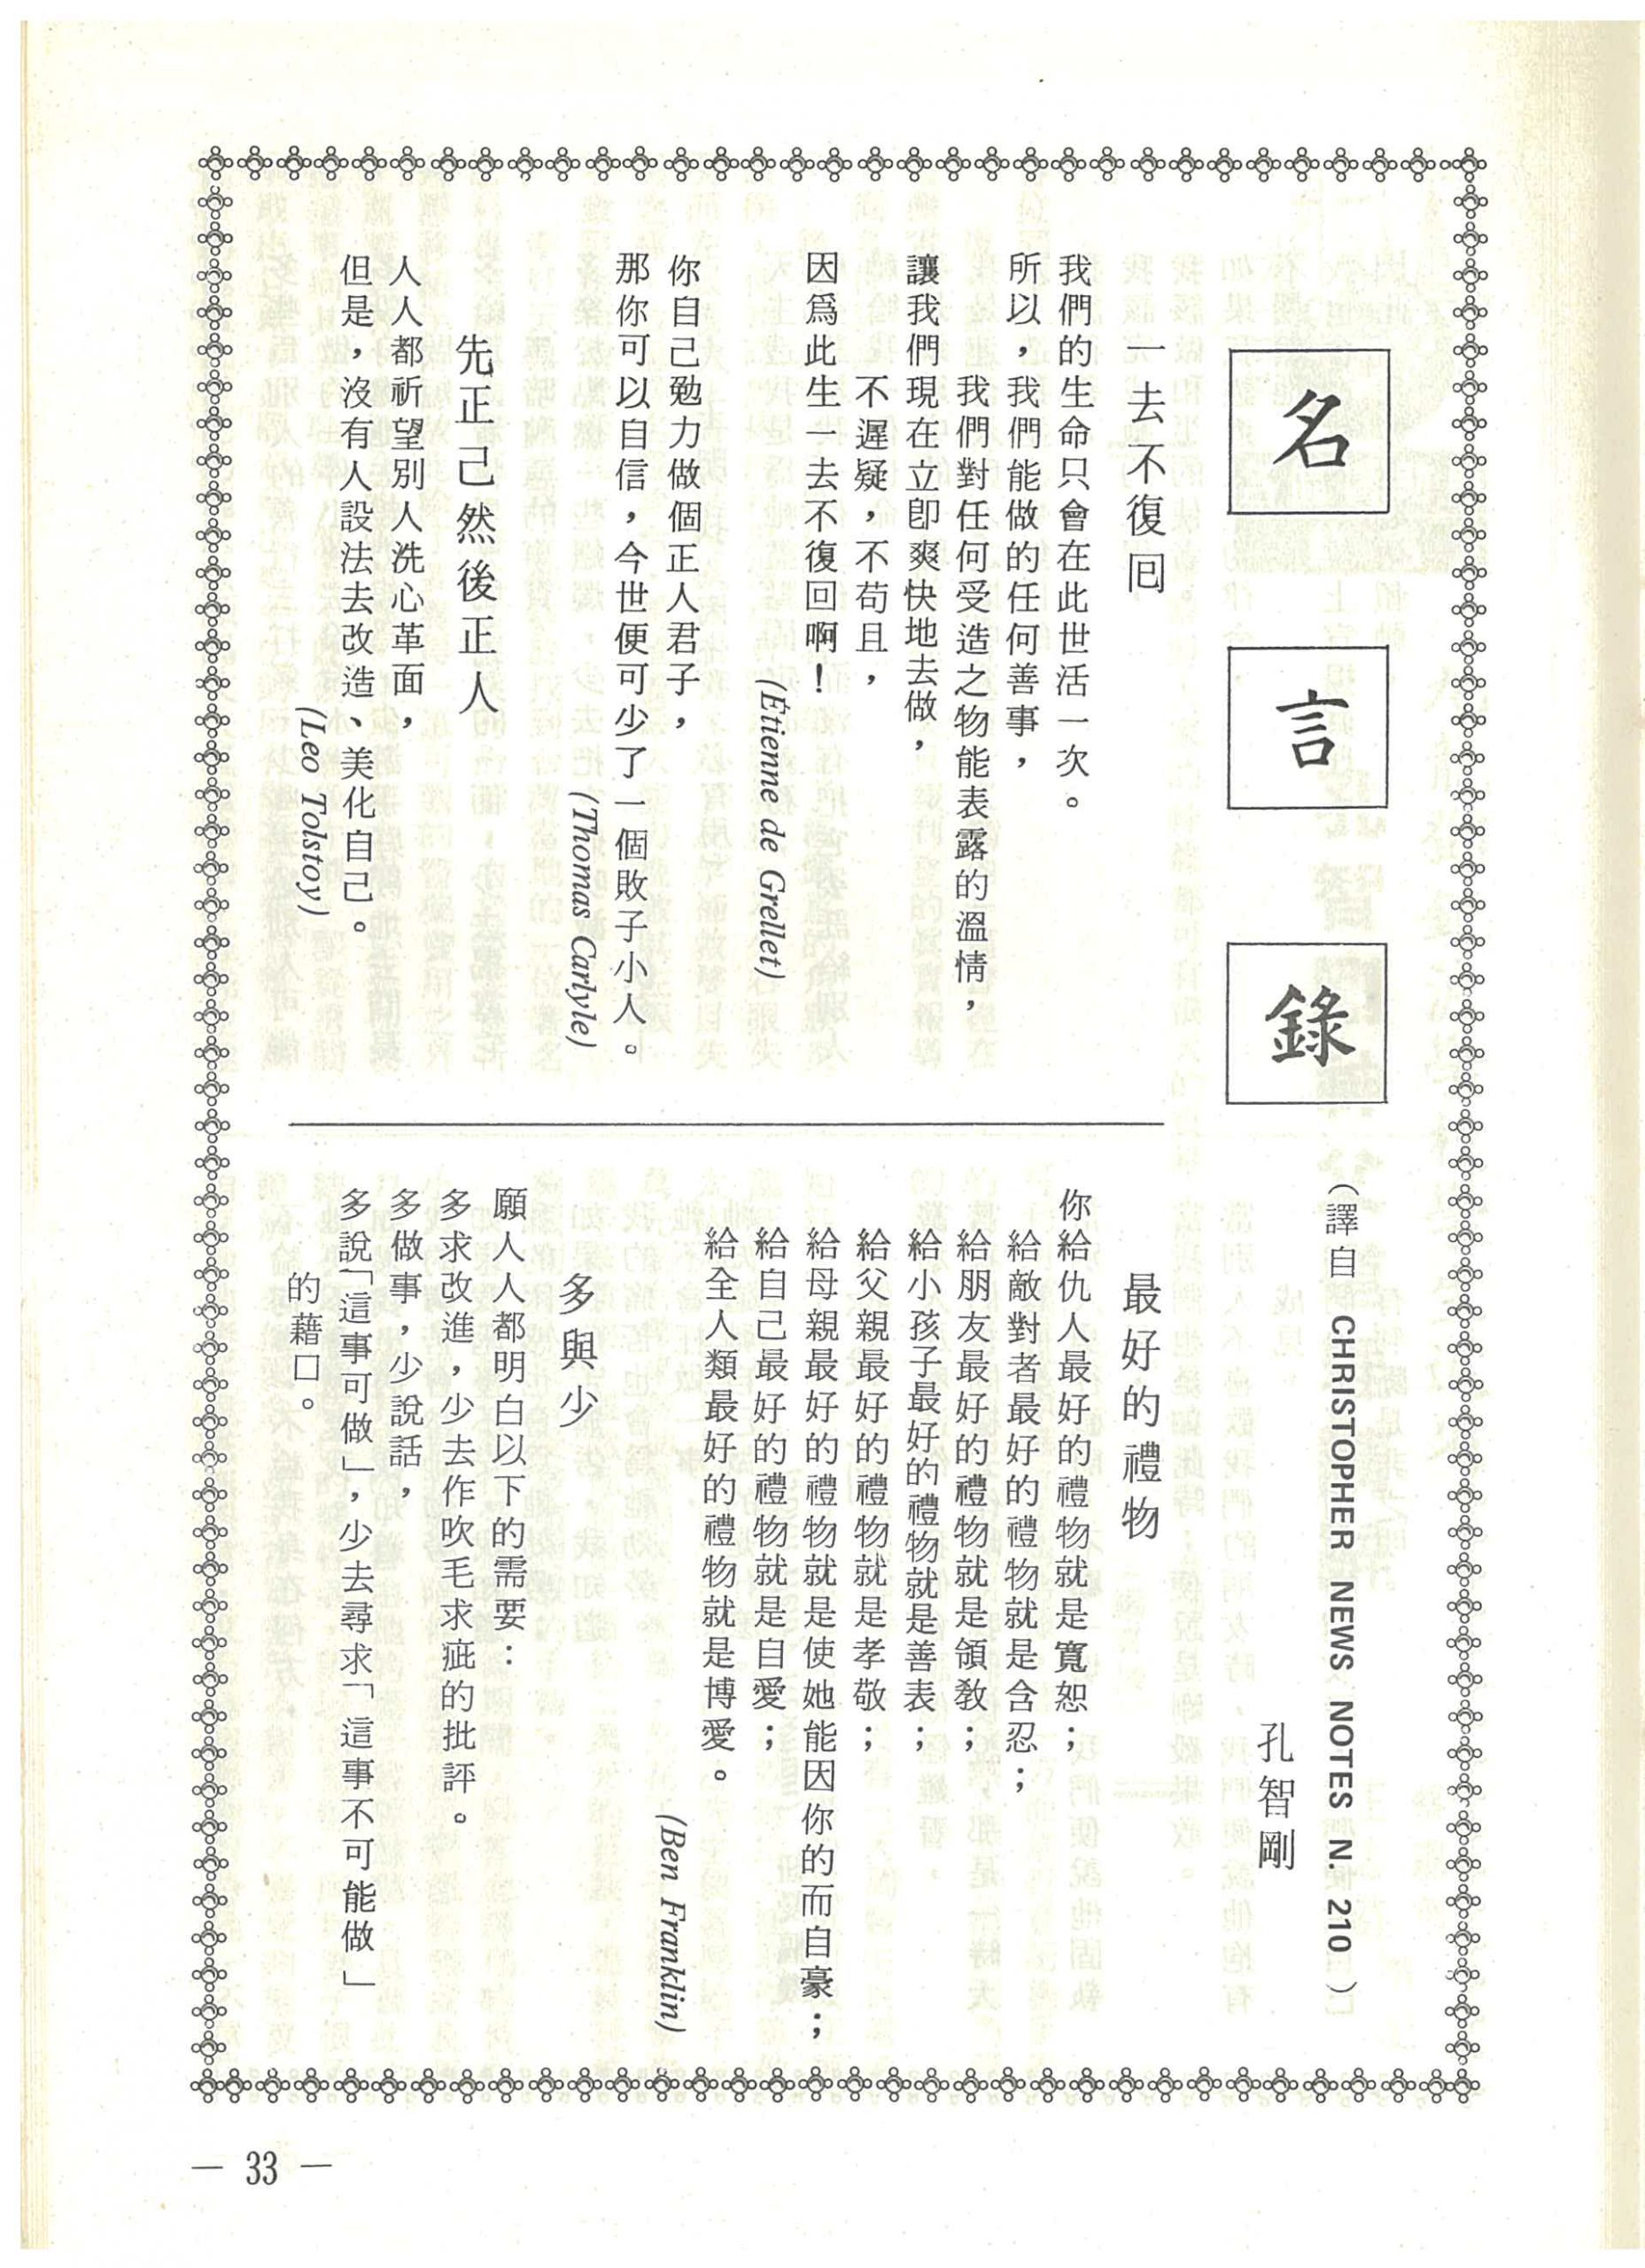 名言錄
（譯自 CHRISTOPHER NEWS NOTES N. 210 ）
孔智剛
一去不復回
我們的生命只會在此世活一次。
所以，我們能做的任何善事，
我們對任何受造之物能表露的溫情，
讓我們現在立卽爽快地去做，
不遲疑，不苟且，
因爲此生一去不復回啊！
(Étienne de Grellet)
你自己勉力做個正人君子，
那你可以自信，今世便可少了一個敗子小人。
(Thomas Carlyle)
先正己然後正人
人人都祈望別人洗心革面，
但是，沒有人設法去改造、美化自己。
(Leo Tolstoy)
最好的禮物
你給仇人最好的禮物就是寬恕；
給敵對者最好的禮物就是含忍；
給朋友最好的禮物就是領教；
給小孩子最好的禮物就是善表；
給父親最好的禮物就是孝敬；
給母親最好的禮物就是使她能因你的而自豪；
給自己最好的禮物就是自愛；
給全人類最好的禮物就是博愛。
(Ben Franklin)
多與少
願人人都明白以下的需要：
多求改進，少去作吹毛求疵的批評。
多做事，少說話，
多說「這事可做」，少去尋求「這事不可能做」
的藉口。
— 33 —